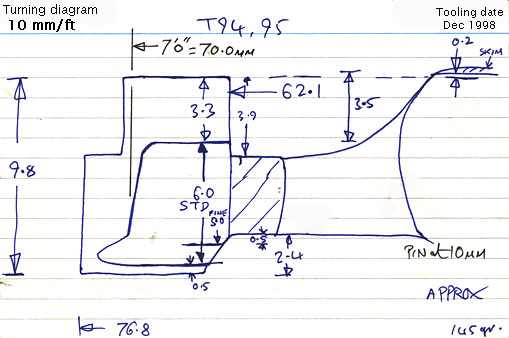 Turning diagram
10 mm/ft
T94, 95
Tooling date
Dec 1998
7'0" = 70.0mm
0.2
SKIM
62.1
3.3
3.9
3.5
9.8
6.0
STD
FINE
0.5
2.4
0.5
PIN at 10mm
APPROX
76.8
145gr.